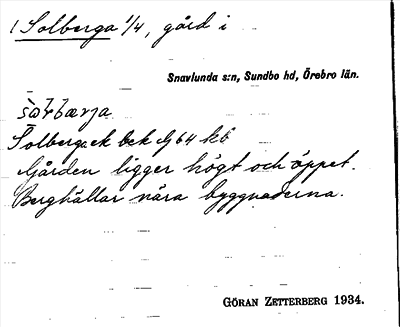 1 Solberga 1/4, gård i
Snavlunda s:n, Sundbo hd, Örebro län.
Solberga ek bek dj 64 kö
Gården ligger högt och öppet.
Berghällar nära byggnaderna.
GÖRAN ZETTERBERG 1934.